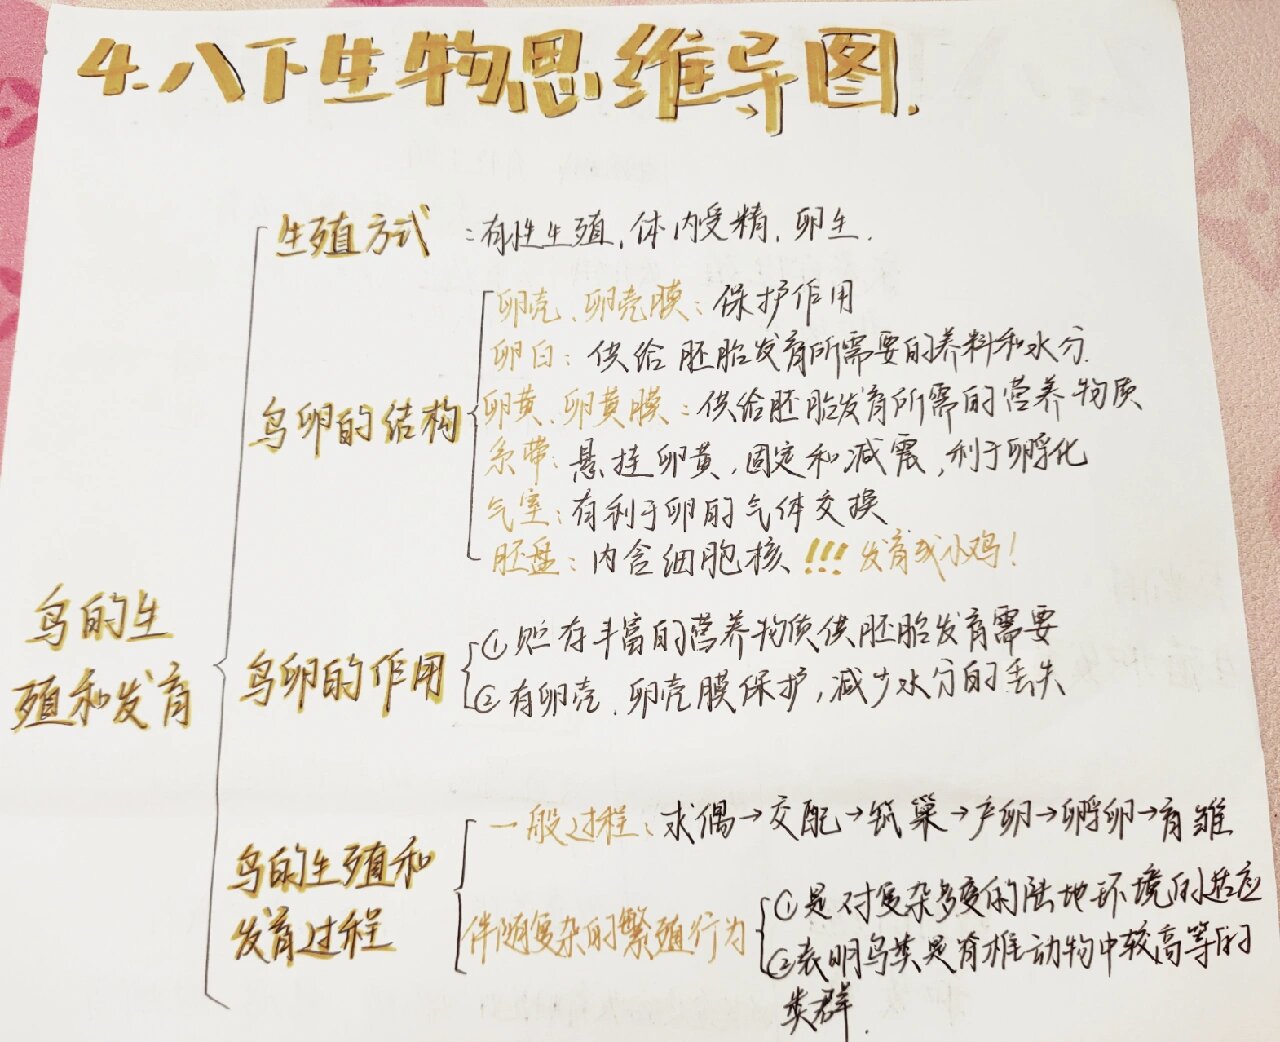 4.八下生物思维导图.
生殖方式：有性生殖,体内受精,卵生.
鸟卵的结构
卵壳、卵壳膜：保护作用
卵白：供给胚胎发育所需要的养料和水分.
卵黄、卵黄膜：供给胚胎发育所需的营养物质
系带：悬挂卵黄,固定和减震,利于孵化
气室：有利于卵的气体交换
胚盘：内含细胞核!!!发育成小鸡!
鸟的生
殖和发育
鸟卵的作用
①贮存丰富的营养物质供胚胎发育需要
②有卵壳、卵壳膜保护,减少水分的丢失
鸟的生殖和
发育过程
一般过程：求偶→交配→筑巢→产卵→孵卵→育雏
伴随复杂的繁殖行为
①是对复杂多变的陆地环境的适应
②表明鸟类是脊椎动物中较高等的
类群.